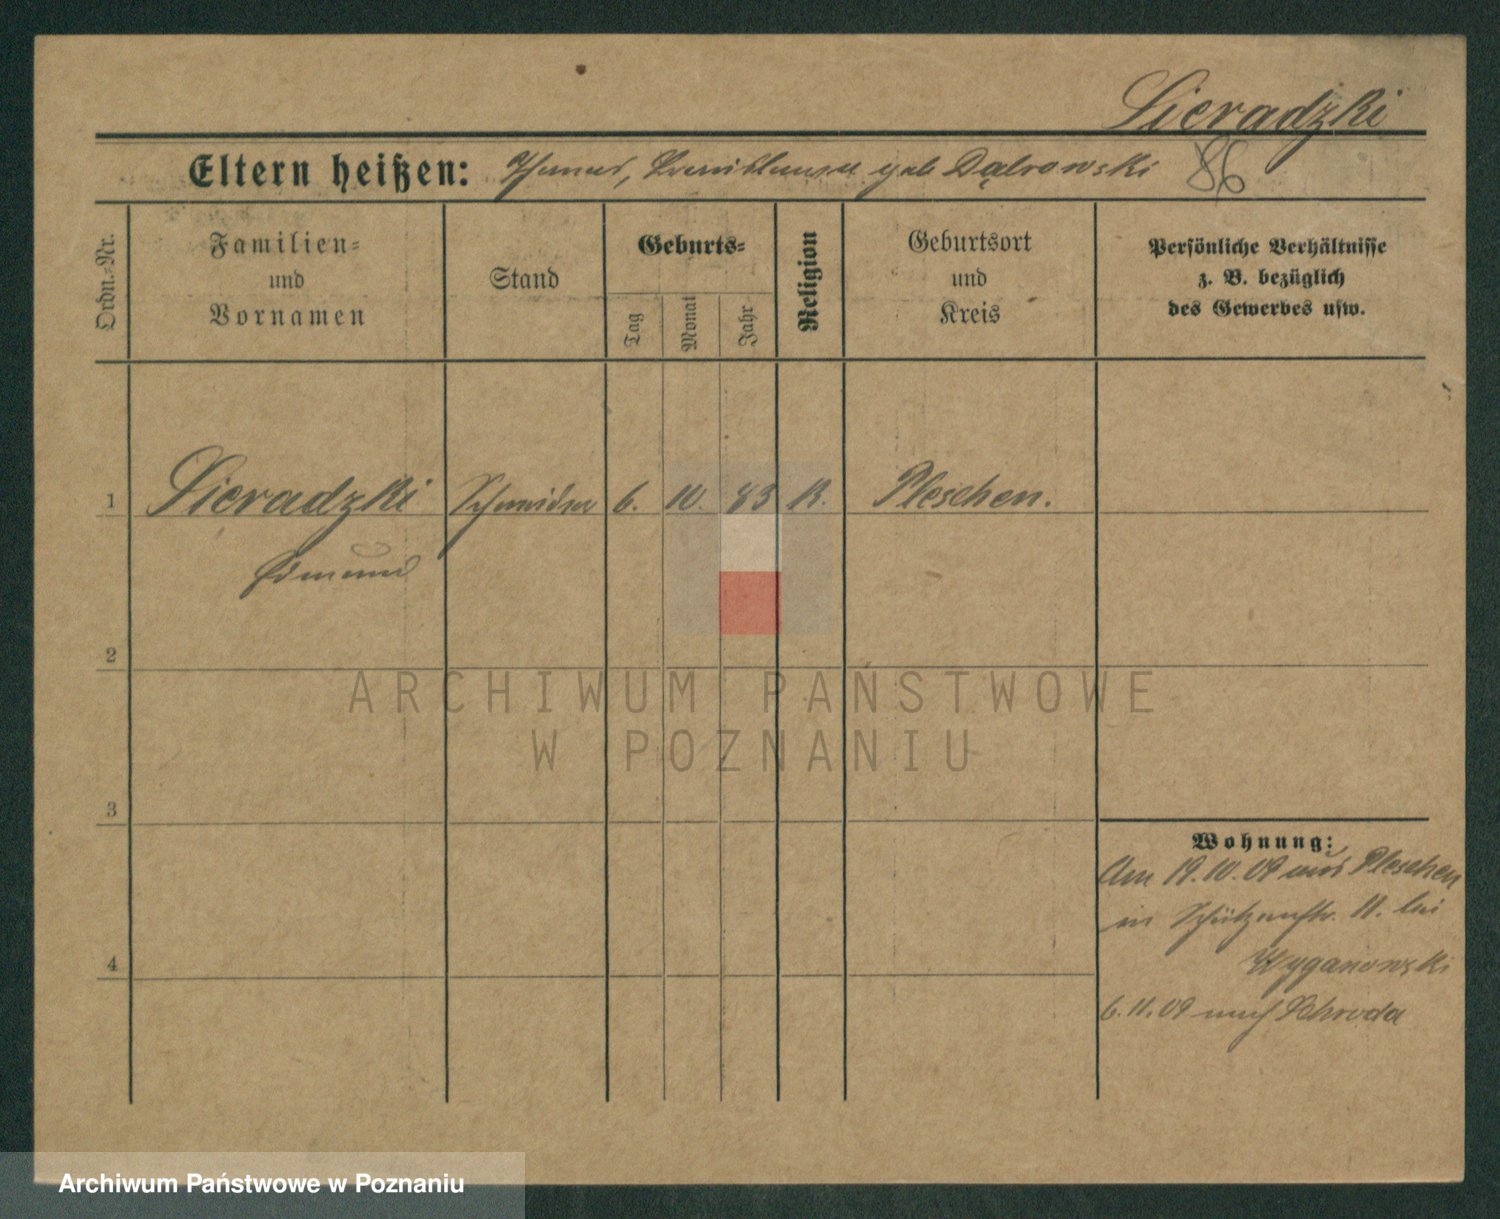 Sieradzki
Eltern heißen: Thomas, geb Dąbrowski
86
Ordn.-Nr.
Familien-
und
Vornamen
Stand
Geburts-
Tag
Monat
Jahr
Religion
Geburtsort
und
Kreis
Persönliche Verhältnisse
z. B. bezüglich
des Gewerbes usw.
1 Sieradzki Schneider 6. 10. 83 K. Pleschen.
Edmund
2
3
4
Wohnung:
Am 19.10.09 aus Pleschen
in Schützenstr. 11. bei
Wyganowski
6.11.09 nach Schroda
ARCHIWUM PAŃSTWOWE
W POZNANIU
Archiwum Państwowe w Poznaniu